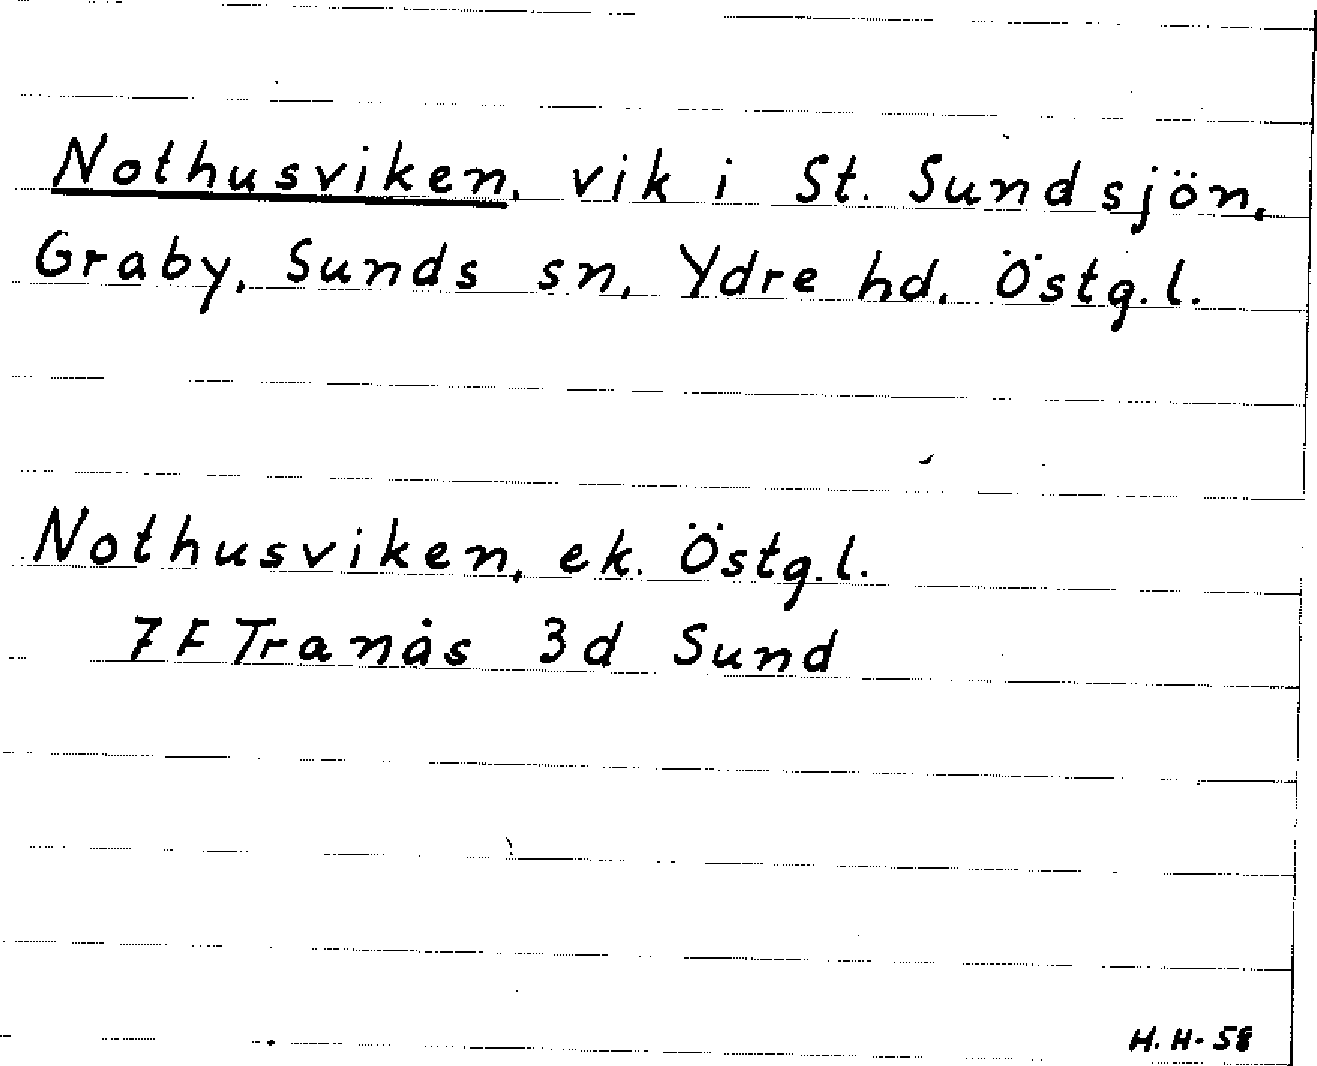 Nothusviken, vik i St. Sundsjön,
Graby, Sunds sn, Ydre hd, Östg.l.
Nothusviken, ek. Östg.l.
7F Tranås 3d Sund
H.H-58